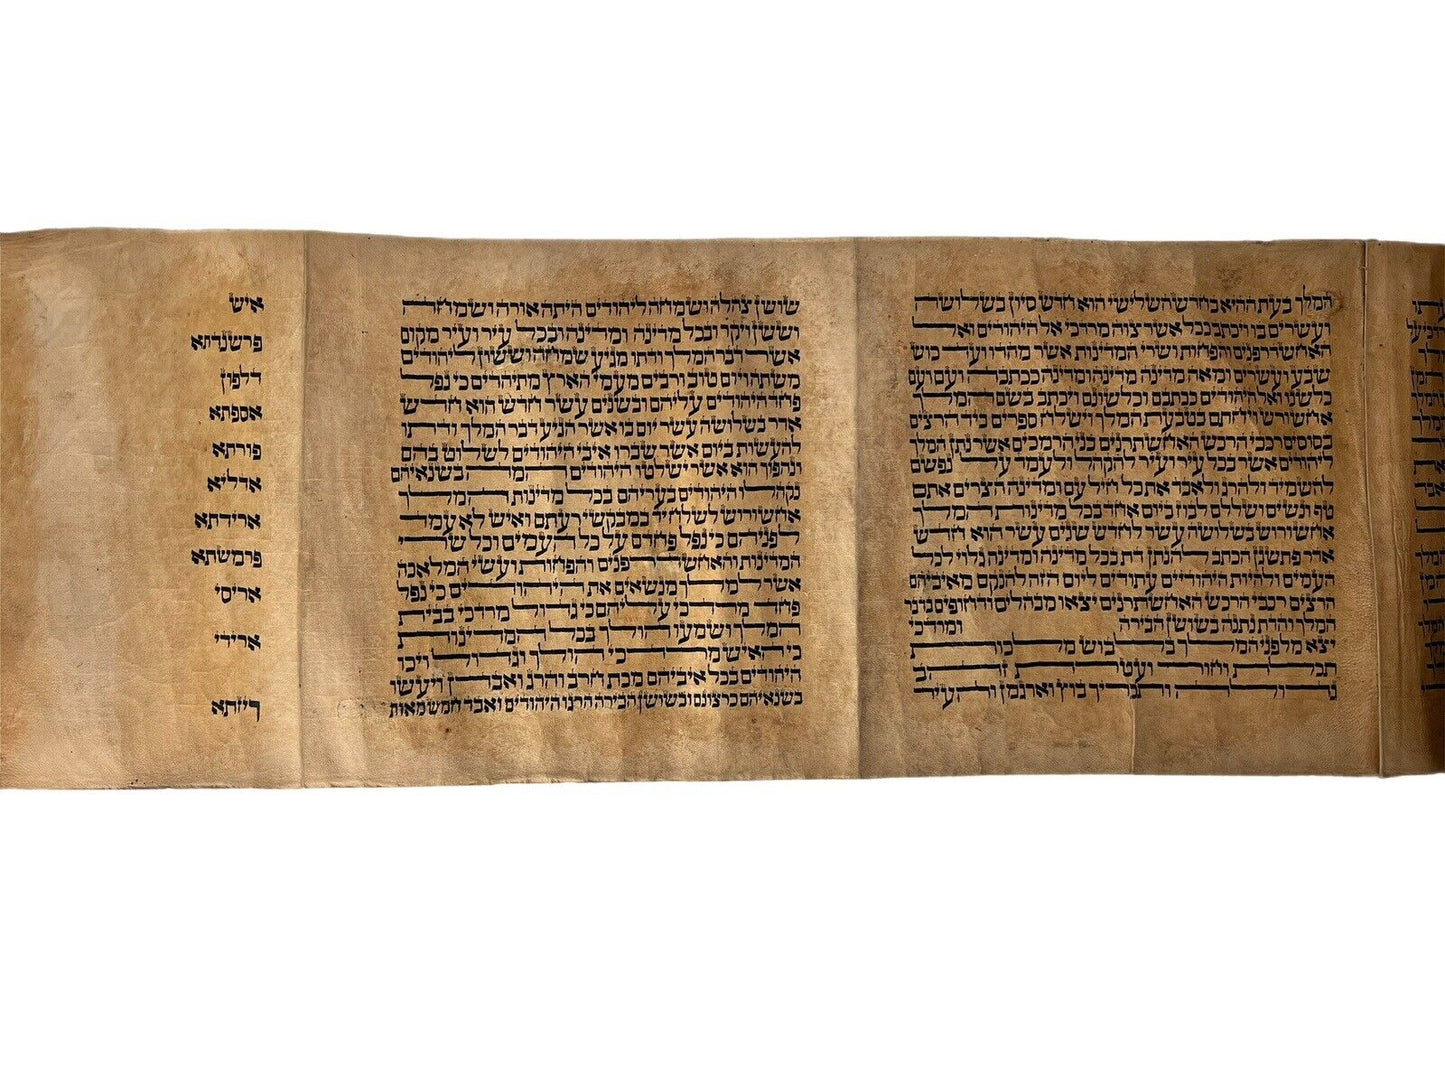 המלך בעת ההיא בחדש השלישי הוא חדש סיון בשלושה
ועשרים בו ויכתב ככל אשר צוה מרדכי אל היהודים ואל
האחשדרפנים והפחות ושרי המדינות אשר מהדו ועד כוש
שבע ועשרים ומאה מדינה מדינה ומדינה ככתבה ועם ועם
כלשנו ואל היהודים ככתבם וכלשונם ויכתב בשם המלך
אחשורש ויחתם בטבעת המלך וישלח ספרים ביד הרצים
בסוסים רכבי הרכש האחשתרנים בני הרמכים אשר נתן המלך
ליהודים אשר בכל עיר ועיר להקהל ולעמד על נפשם
להשמיד ולהרג ולאבד את כל חיל עם ומדינה הצרים אתם
טף ונשים ושללם לבוז ביום אחד בכל מדינות המלך
אחשורוש בשלושה עשר לחדש שנים עשר הוא חדש
אדר פתשגן הכתב להנתן דת בכל מדינה ומדינה גלוי לכל
העמים ולהיות היהודיים עתודים ליום הזה להנקם מאיביהם
הרצים רכבי הרכש האחשתרנים יצאו מבהלים ודחופים בדבר
המלך והדת נתנה בשושן הבירה ומרדכי
יצא מלפני המלך בלבוש מלכות
תכלת וחור ועטרת זהב
גדולה ותכריך בוץ וארגמן והעיר
שושן צהלה ושמחה ליהודים היתה אורה ושמחה
וששן ויקר ובכל מדינה ומדינה ובכל עיר ועיר מקום
אשר דבר המלך ודתו מגיע שמחה וששון ליהודים
משתה ויום טוב ורבים מעמי הארץ מתיהדים כי נפל
פחד היהודים עליהם ובשנים עשר חדש הוא חדש
אדר בשלושה עשר יום בו אשר הגיע דבר המלך ודתו
להעשות ביום אשר שברו איבי היהודים לשלוט בהם
ונהפוך הוא אשר ישלטו היהודים המה בשנאיהם
נקהלו היהודים בעריהם בכל מדינות המלך
אחשורוש לשלח יד במבקשי רעתם ואיש לא עמד
לפניהם כי נפל פחדם על כל העמים וכל שרי
המדינות והאחשדרפנים והפחות ועשי המלאכה
אשר למלך מנשאים את היהודים כי נפל
פחד מרדכי עליהם כי גדול מרדכי בבית
המלך ושמעו הולך בכל המדינות
כי האיש מרדכי הולך וגדול ויכו
היהודים בכל איביהם מכת חרב והרג ואבדן ויעשו
בשנאיהם כרצונם ובשושן הבירה הרגו היהודים ואבד חמש מאות
איש
פרשנדתא
דלפון
אספתא
פורתא
אדליא
ארידתא
פרמשתא
אריסי
ארידי
ויזתא